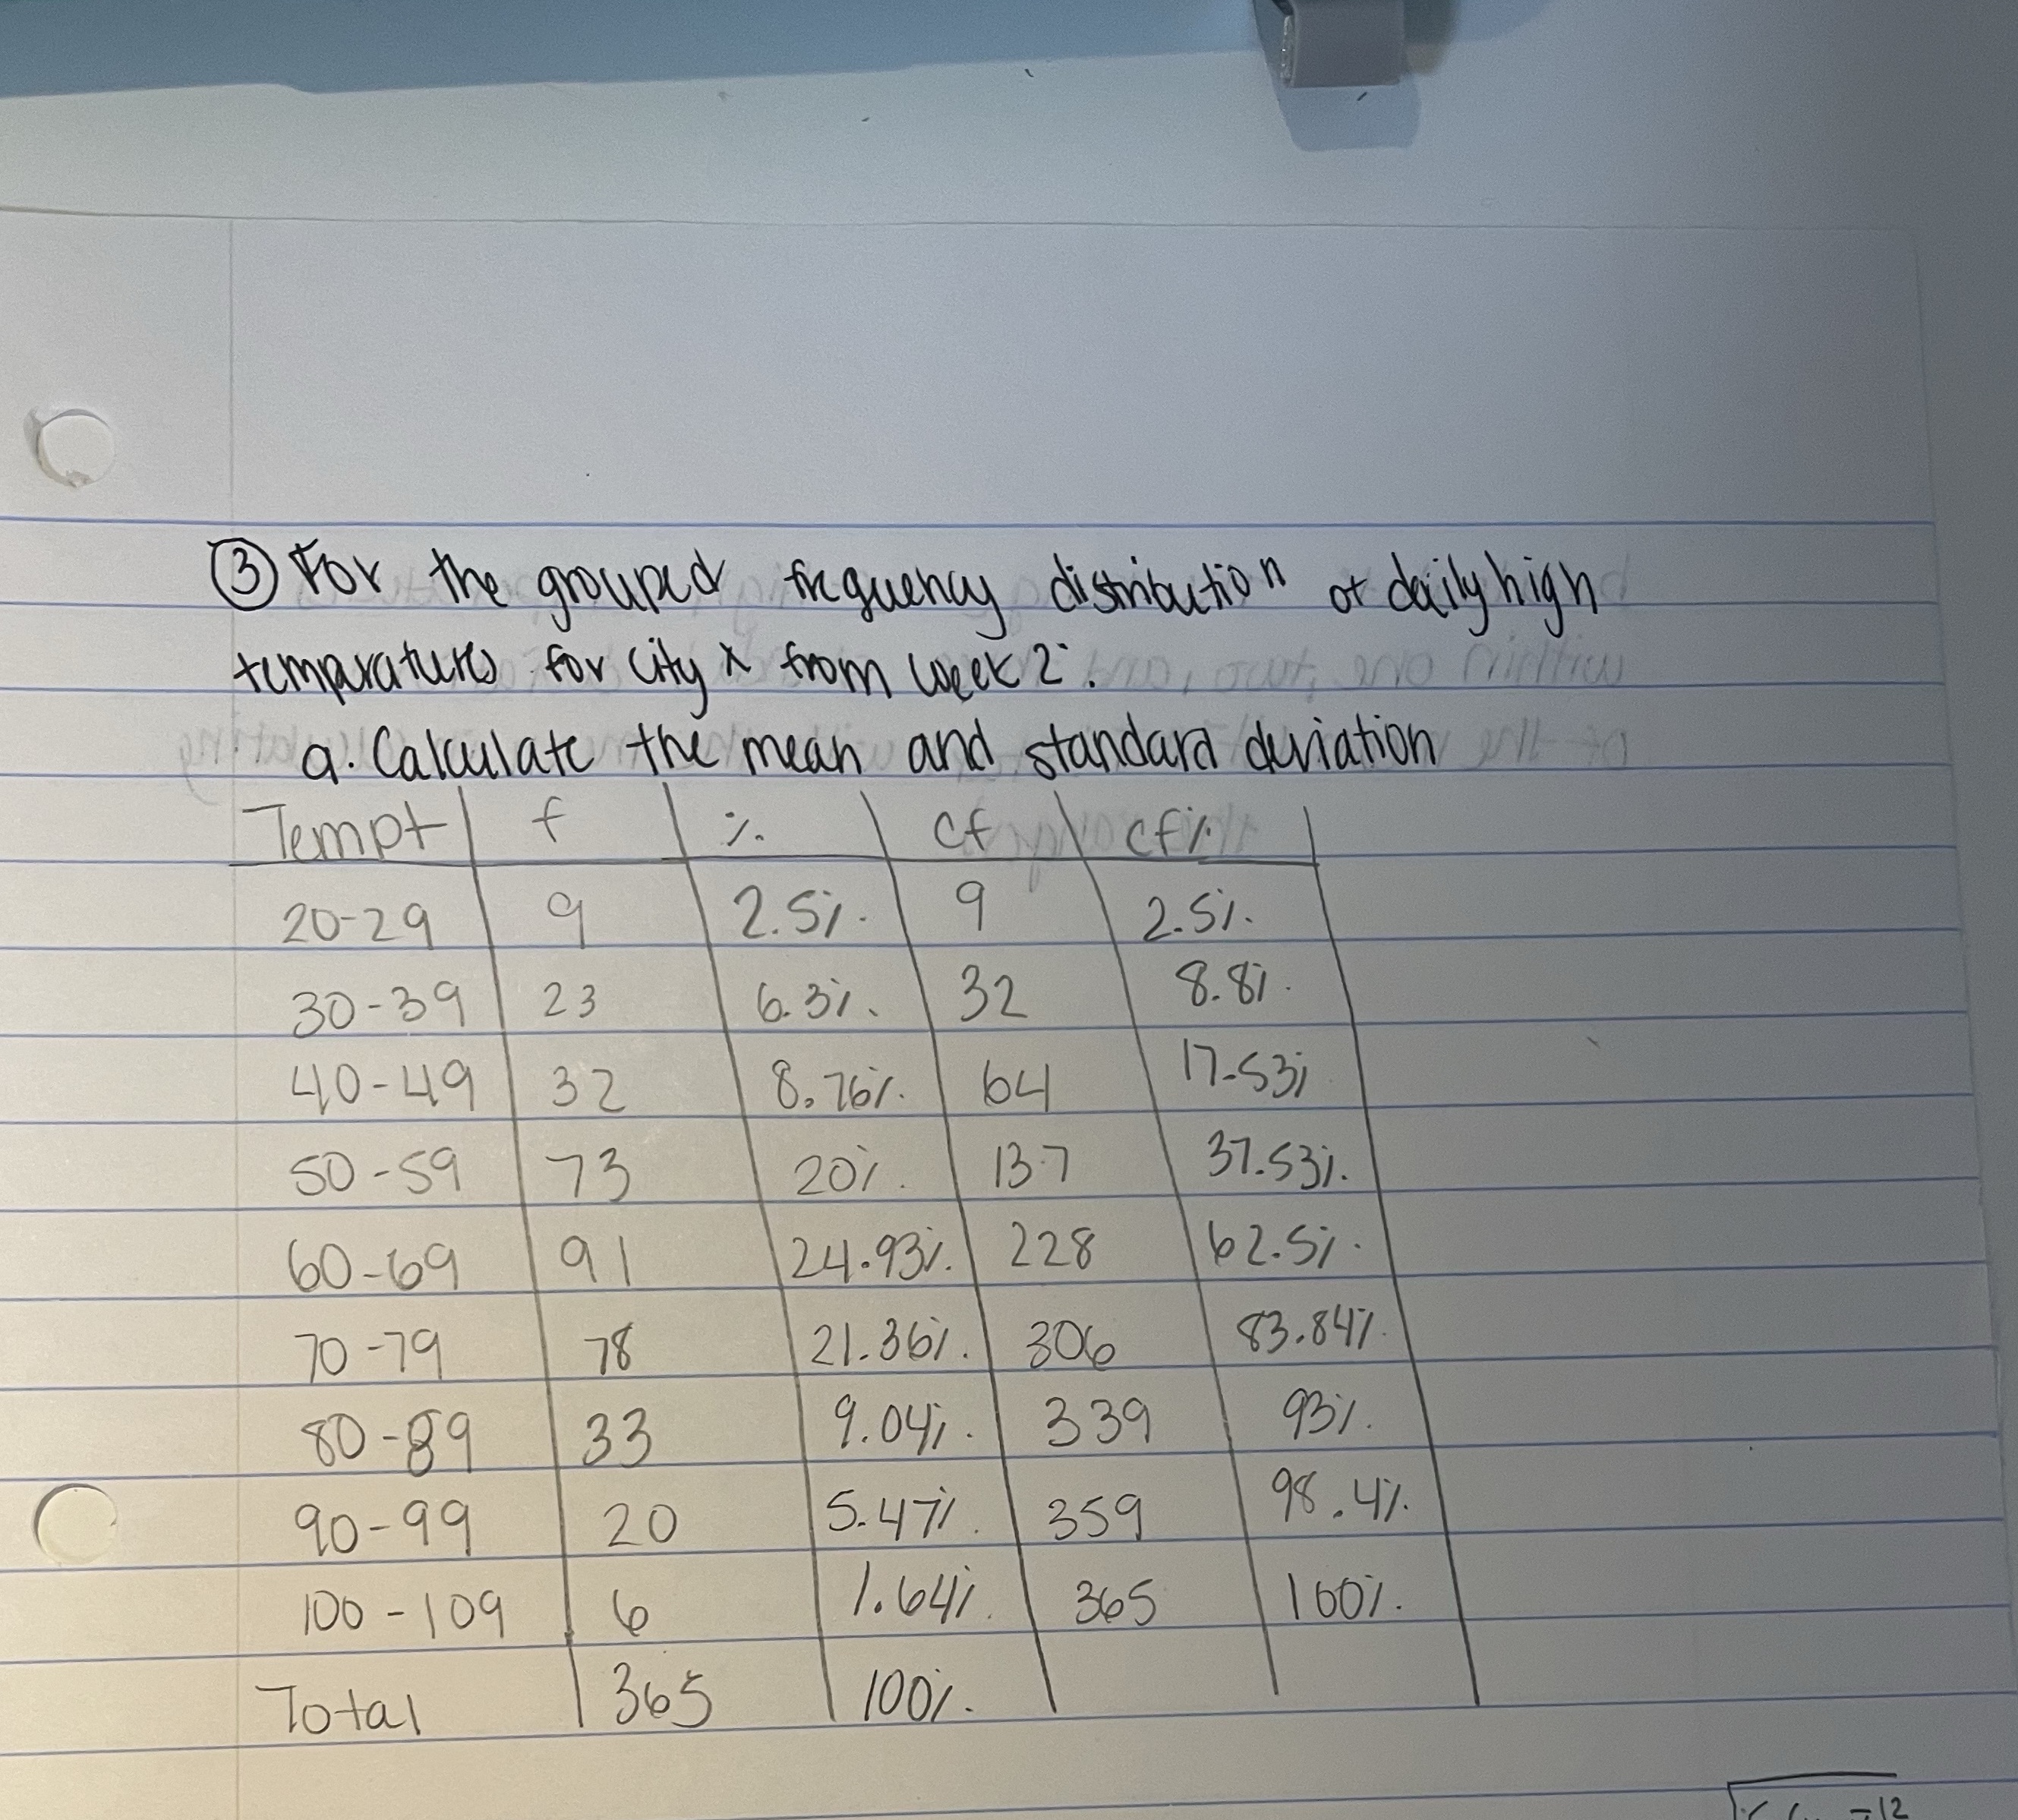 ③ For the grouped frequency distribution of daily high
temperatures for city x from week 2:
a. Calculate the mean and standard deviation
Tempt f % cf cf%
20-29 9 2.5% 9 2.5%
30-39 23 6.3% 32 8.8%
40-49 32 8.76% 64 17.53%
50-59 73 20% 137 37.53%
60-69 91 24.93% 228 62.5%
70-79 78 21.36% 306 83.84%
80-89 33 9.04% 339 93%
90-99 20 5.47% 359 98.4%
100-109 6 1.64% 365 100%
Total 365 100%